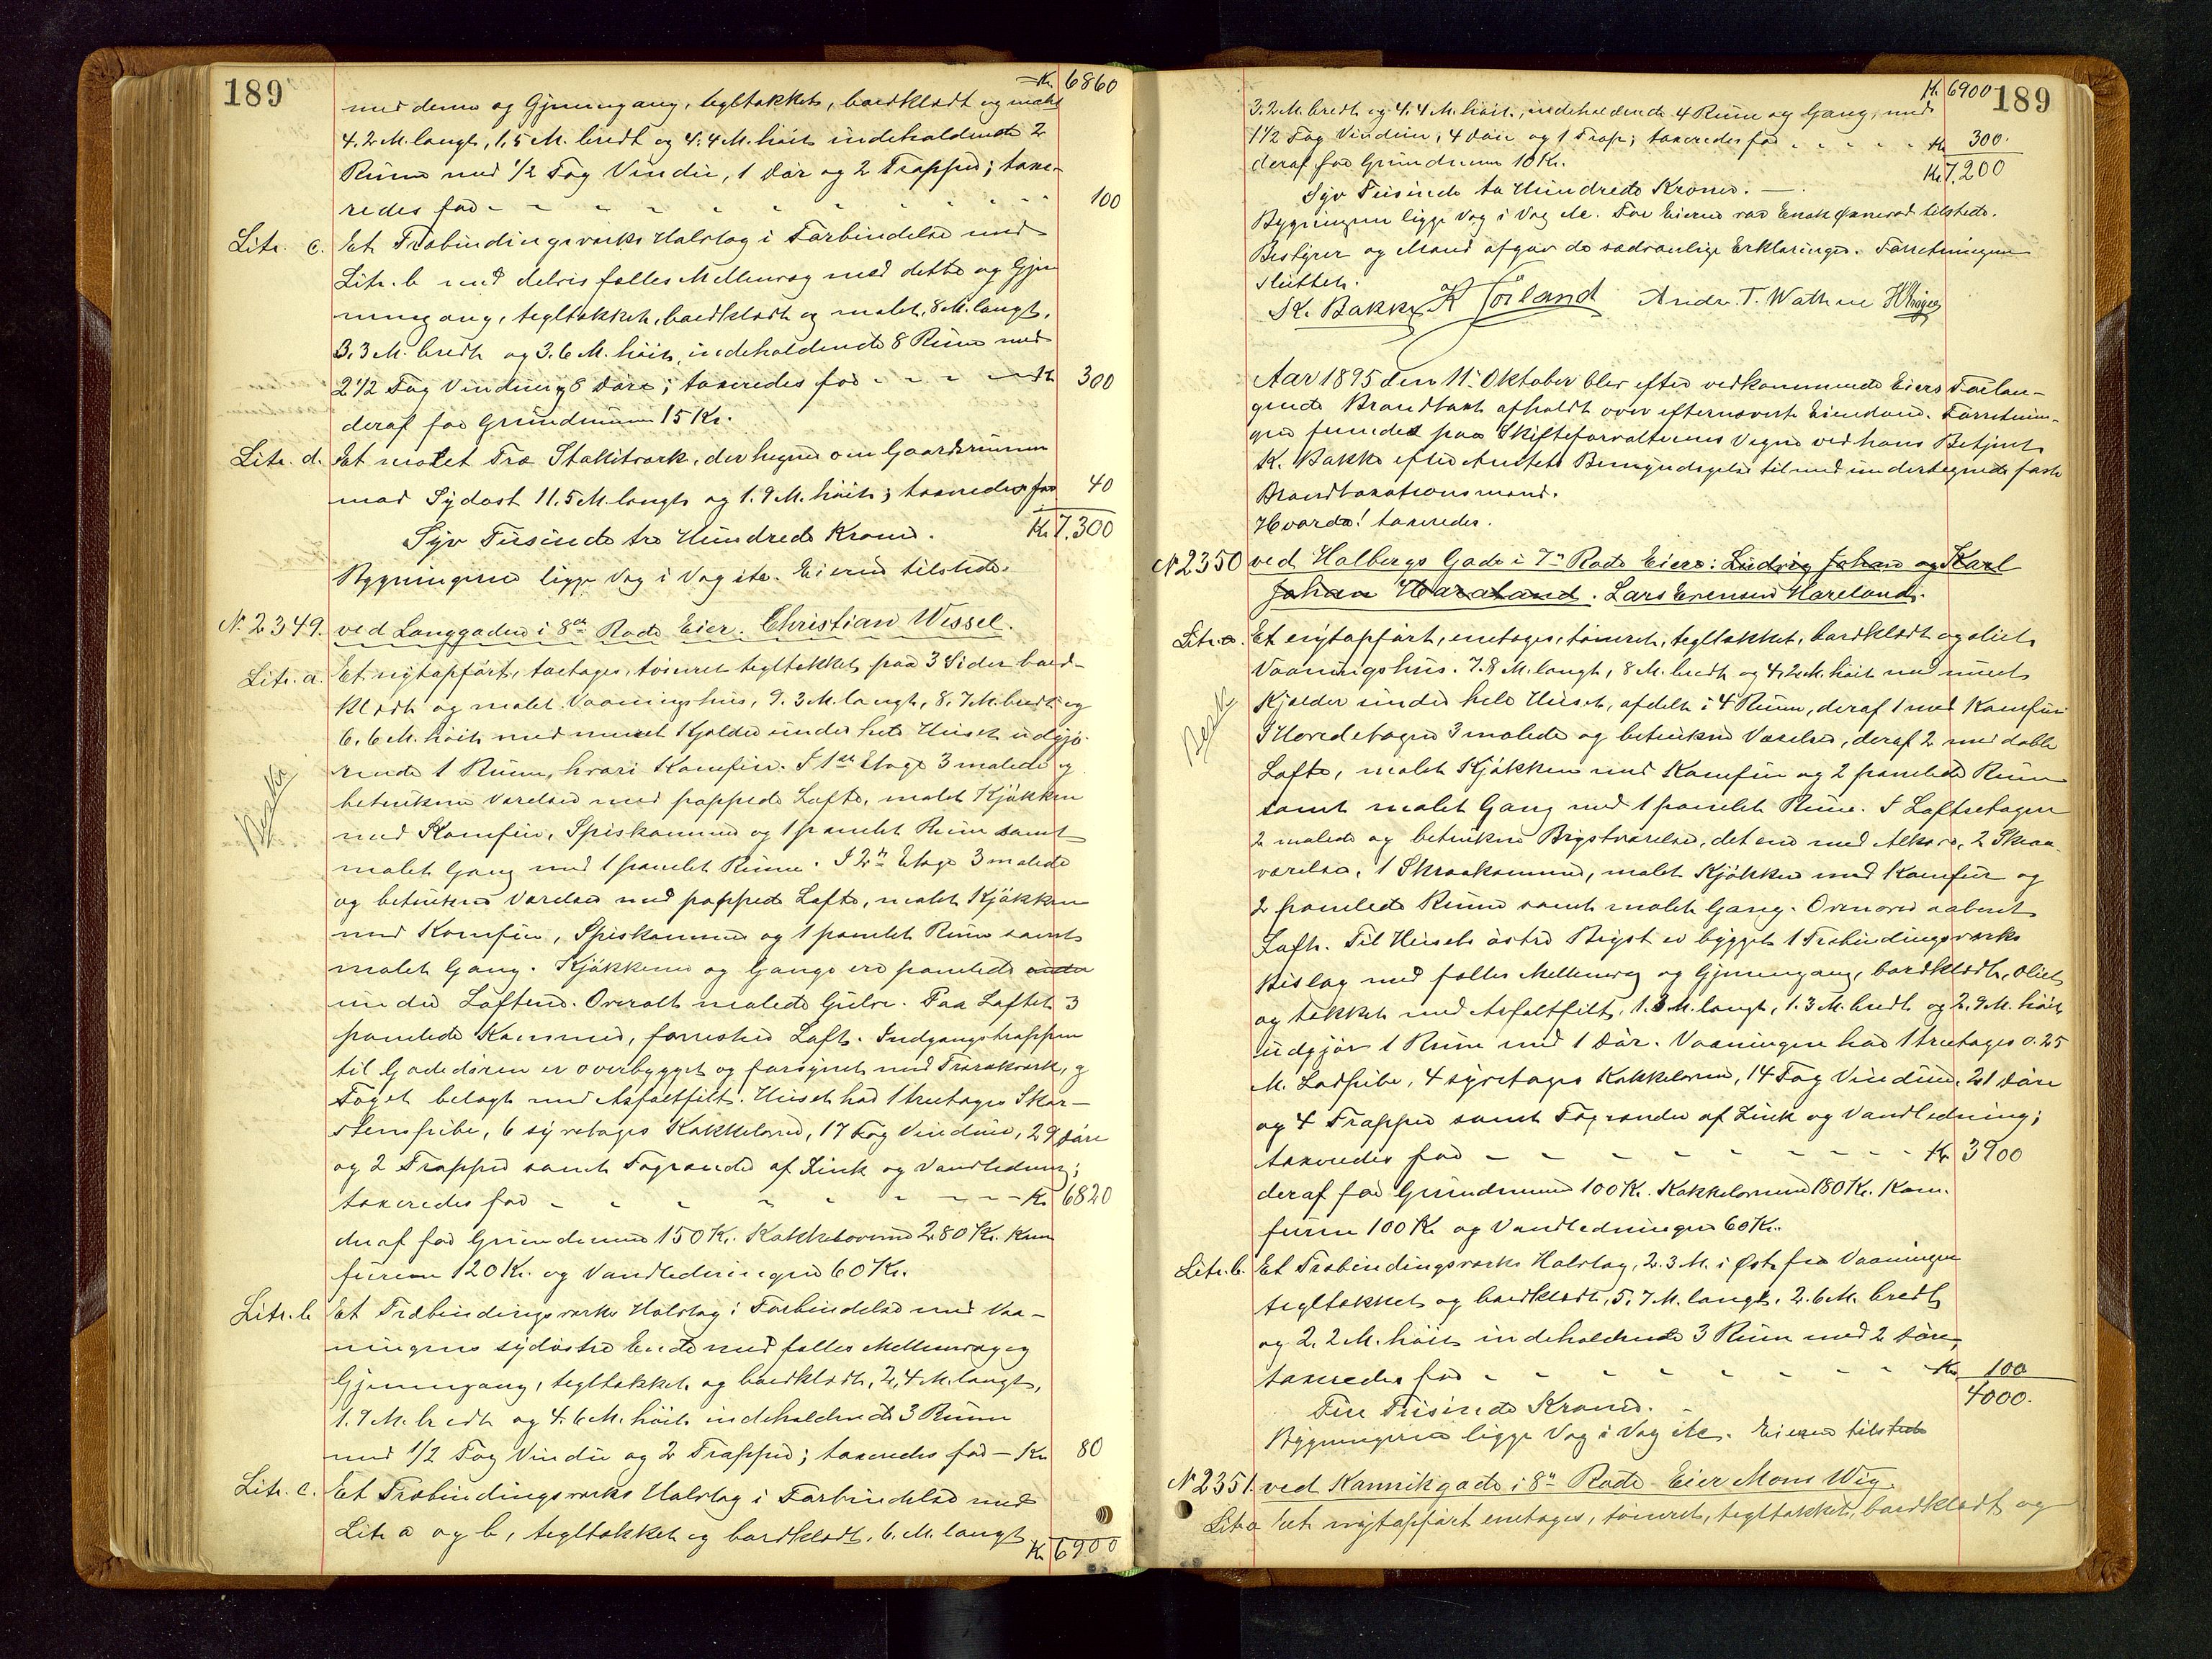 189
Kr. 6860
med denne og Gjennemgang, tegltækket, bordklædt og malet
4.2 M. langt, 1,5 M. bredt og 4.4 M. høit indeholdende 2
Rum med 1/2 Fag Vindu, 1 Dør og 2 Trapper; taxe-
redes for - - - - 100
Litr. c. Et Træbindingsværks Halvtag i Forbindelse med
Litr. b med delvis fælles Mellemvæg med dette og Gjen-
nemgang, tegltækket, bordklædt og malet, 8 M. langt,
3,3 M. bredt og 3.6 M. høit, indeholdende 8 Rum med
2 1/2 Fag Vinduer, 8 Døre; taxeredes for - - - Kr 300
deraf for Grundmuren 15 Kr.
Litr. d. Et malet Træ Stakitværk, der hegner om Gaardsrummet
mod Sydost 11.5 M. langt og 1.9 M. høit; taxeredes for 40
Kr 7.300
Syv Tusinde tre Hundrede Kroner.
Bygningerne ligge Væg i Væg etc. Eieren tilstede.
No. 2349. ved Langgaden i 8de Rode Eier: Christian Wessel.
Litr. a. Et nytopført, toetages, tømret tegltækket, paa 3 Sider bord-
klædt og malet Vaaningshus, 9.3 M. langt, 8,7 M. bredt og
6.6 M. høit med muret Kjelder under hele Huset udgjø-
rende 1 Rum, hvori Komfur. I 1ste Etage 3 malede og
betrukne Værelser med pappede Lofte, malet Kjøkken
med Komfur, Spiskammer og 1 panelet Rum samt
malet Gang med 1 panelet Rum. I 2den Etage 3 malede
og betrukne Værelser med pappede Lofte, malet Kjøkken
med Komfur, Spiskammer og 1 panelet Rum samt
malet Gang. Kjøkkenerne og Gange ere panelede
under Loftene. Overalt malede Gulve. Paa Loftet 3
panelede Kammer, forresten Loft. Indgangstrappen
til Gadedøren er overbygget og forsynet med Træværk, og
Taget belagt med Asfaltfilt. Huset har 1 treetages Skor-
stenspibe, 6 syvetages Kakkelovne, 17 Fag Vinduer, 29 Døre
og 2 Trapper samt Tagrender af Zink og Vandledning;
taxeredes for - - - - Kr. 6820
deraf for Grundmuren 150 Kr. Kakkelovnene 280 Kr. Kom-
furene 120 Kr. og Vandledningen 60 Kr.
Litr. b Et Træbindingsværks Halvtag i Forbindelse med Vaa-
ningens sydøstre Ende med fælles Mellemvæg og
Gjennemgang, tegltækket og bordklædt, 2,4 M. langt,
1.9 M. bredt og 4.6 M. høit indeholdende 3 Rum
med 1/2 Fag Vindu og 2 Trapper; taxeredes for - Kr. 80
Litr. c. Et Træbindingsværks Halvtag i Forbindelse med
Litr. a og b, tegltækket og bordklædt, 6 M. langt
Kr 6900
Kr. 6900
189
3.2 M. bredt og 4.4 M. høit, indeholdende 4 Rum og Gang, med
1 1/2 Fag Vinduer, 4 Døre og 1 Trap; taxeredes for - - - Kr 300.
deraf for Grundmuren 10 Kr.
Kr 7.200
Syv Tusinde to Hundrede Kroner.
Bygningerne ligge Væg i Væg etc. For Eieren var tilstede.
Bestyrer og Mænd afgav de sædvanlige Erklæringer. Forretningen
sluttet.
K. Bakke K Førland Andr. T. Wathne
Aar 1895 den 11te Oktober blev efter vedkommende Eieres Forlan-
gende Brandtaxt afholdt over efternævnte Eiendomme. Forretnin-
gen fremmedes paa Skifteforvalterens Vegne ved hans Betjent
K. Bakke efter Amtets Bemyndigelse tilmed undertegnede faste
Brandtaxationsmænd.
Hvorda! taxeredes.
No 2350 ved Holbergs Gade i 7de Rode Eiere: Ludvig Johan og Karl
Johan Haraland. Lars Evensen Hæreland.
Litr. a. Et nytopført, enetages, tømret, tegltækket, bordklædt og oliet
Vaaningshus. 7.8 M. langt, 8 M. bredt og 4,2 M. høit med muret
Kjælder under hele Huset, afdelt i 4 Rum, deraf 1 med Komfur
I Hovedetagen 3 malede og betrukne Værelser, deraf 2 med doble
Lofte, malet Kjøkken med Komfur og 2 panelede Rum
samt malet Gang med 1 panelet Rum. I Loftsetagen
2 malede og betrukne Brystværelser, det ene med Alkove, 2 Skraa-
værelser, 1 Skraakammer, malet Kjøkken med Komfur og
2 panelede Rum samt malet Gang. Ovenover aabent
Loft. Til Husets østre Bryst er bygget 1 Træbindingsværks
Bislag med fælles Mellemvæg og Gjennemgang, bordklædt, oliet
og tækket med Asfaltfilt, 1.3 M. langt, 1.3 M. bredt og 2.9 M. høit
udgjør 1 Rum med 1 Dør. Vaaningen har 1 treetages 0.25
M. Lodpibe, 4 syvetages Kakkelovne, 14 Fag Vinduer, 21 Døre
og 4 Trapper samt Tagrender af Zink og Vandledning;
taxeredes for - - - - Kr 3900
deraf for Grundmuren 100 Kr. Kakkelovnene 180 Kr. Kom-
furene 100 Kr og Vandledningen 60 Kr.
Litr. b. Et Træbindingsværks Halvtag, 2.3 M. i Øst fra Vaaningen
tegltækket og bordklædt, 5.7 M. langt, 2.6 M. bredt
og 2.2 M. høit indeholdende 3 Rum med 2 Døre,
taxeredes for - - - - Kr. 100
4000.
Fire Tusinde Kroner.
Bygningerne ligge Væg i Væg etc. Eieren tilstede
No 2351 ved Kannikgade i 8de Rode Eier Mons Wig
Litr. a Et nytopført enetages, tømret, tegltækket, bordklædt og